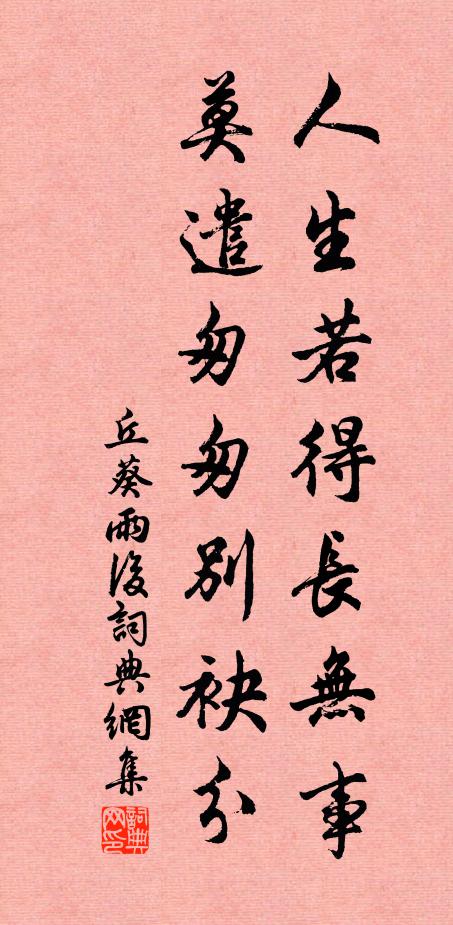 人生若得長無事
莫遣匆匆別袂分
丘葵雨後詞典網集
詞典网印